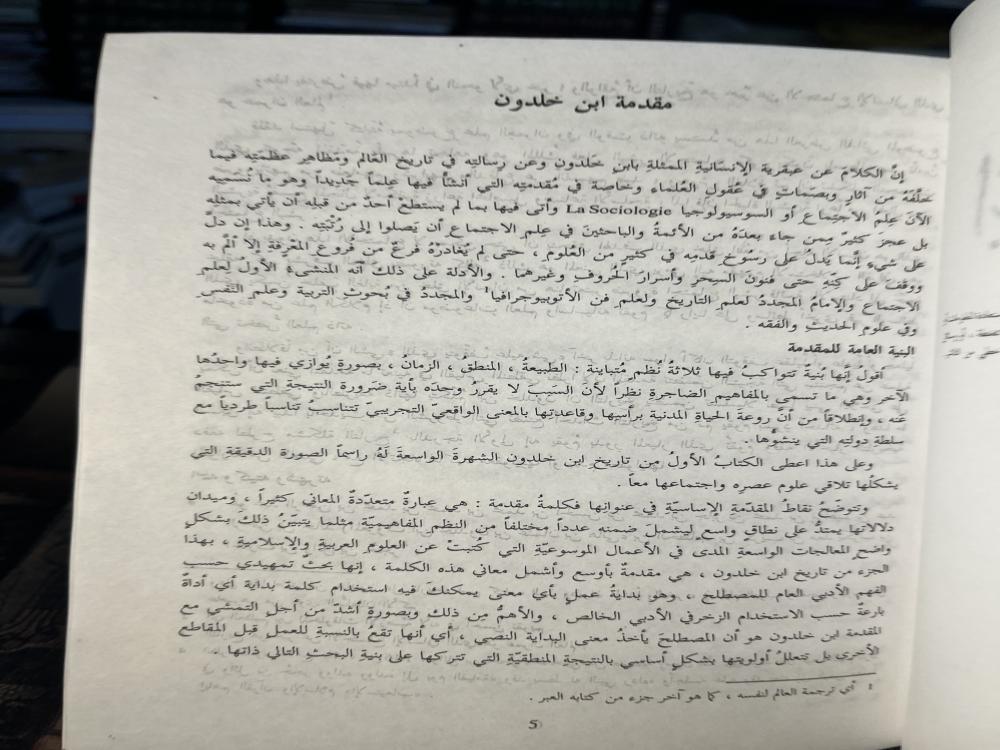 مقدمة ابن خلدون
إنَّ الكلامَ عن عبقرية الإنسانيةِ الممثلةِ بابنِ خَلدون وعن رسالتِه في تاريخ العَالم ومَظاهِر عظمتِه فيما
خلَّفَهُ من آثارٍ وبصَماتٍ في عُقولِ العُلماءِ وخاصة في مُقدمتِه التي أنشأَ فيها علماً جَديداً وهو ما نُسَميِه
الآنَ عِلمُ الاجتِماع أو السوسيولوجيا La Sociologie وأتى فيها بما لم يستطعْ أحدٌ من قبلِه أن يأتي بمثلِه
بل عجزَ كثيرٌ مِمن جاء بعدَهُ من الأئمةُ والباحثينَ في عِلم الاجتماع أن يَصلوا إلى رُتْبتِه . وهذا إن دلّ
على شيءٍ إنَّما يَدلُ على رسُوخ قدمِه في كثيرٍ من العُلوم ، حتى لم يُغادرْهُ فرعٌ من فُروع المعْرفةِ إلاَّ ألمَّ به
ووقفَ على كنِهِ حتى فُنونَ السِحرِ وأسرارُ الحُروفِ وغيرهما . والأدلة على ذلك أنّه المنشىءُ الأولُ لِعلم
الاجتماع والإمامُ المجددُ لعلم التاريخ ولعلم فن الأتوبيوجرافيا¹ والمجددُ في بُحوثِ التربية وعلم النَّفس
وفي علوم الحَديثِ والفقه .
البنية العامة للمقدمة
أقولُ إنَّها بُنيةٌ تتواكبُ فيها ثلاثةُ نُظمٍ مُتباينة : الطبيعةُ ، المنطقُ ، الزمانُ ، بصورةٍ يُوازي فيها واحدُها
الآخر وهي ما تسمى بالمفاهيم الضاجرةِ نظراً لأنَّ السَببَ لا يقررُ وحدَه بأيةِ ضَرورة النتيجة التي ستنجمُ
عَنه ، وإنطلاقاً من أنَّ روعةَ الحياةِ المدنية برأسِها وقاعدتِها بالمعنى الواقعيّ التجريبيّ تتناسبُ تناسباً طردياً مع
سلطةِ دولتِه التي ينشؤُها .
وعلى هذا اعطى الكتابُ الأولُ مِن تاريخِ ابن خلدون الشهرةَ الواسعةَ لَهُ راسماً الصورة الدقيقة التي
يشكلُها تلاقي علوم عصرِه واجتماعها معاً .
وتتوضحُ نقاطُ المقدّمةِ الإساسيّةِ في عنوانِها فكلمةُ مقدمة : هي عبارةٌ متعدّدةُ المعاني كثيراً ، وميدان
دلالاتها يمتدُّ على نطاقٍ واسع ليشملَ ضمنه عدداً مختلفاً من النظم المفاهيميّة مثلما يتبيّنُ ذلكَ بشكلٍ
واضح المعالجات الواسعة المدى في الأعمال الموسوعيّة التي كُتبتْ عن العلوم العربية والإسلامية ، بهذا
الجزء من تاريخ ابن خلدون ، هي مقدمةٌ بأوسع وأشمل معاني هذه الكلمة ، إنها بحثٌ تمهيدي حسب
الفهم الأدبي العام للمصطلح ، وهو بدايةُ عملٍ بأيِّ معنى يمكنكَ فيه استخدام كلمة بداية أي أداةٌ
بارعةٌ حسب الاستخدام الزخرفي الأدبي الخالص ، والأهمُّ مِن ذلك وبصورةٍ أشدّ من أجل التمشي مع
المقدمة ابن خلدون هو أن المصطلحَ يأخذُ معنى البداية النصي ، أي أنها تقعُ بالنسبةِ للعملِ قبل المقاطع
الأخرى بل تتعللُ أولويتها بشكلٍ أساسي بالنتيجةِ المنطقيّةِ التي تتركها على بنية البحثِ التالي ذاتها .
¹ أي ترجمة العالم لنفسه ، كما هو آخر جزء من كتابه العبر .
5